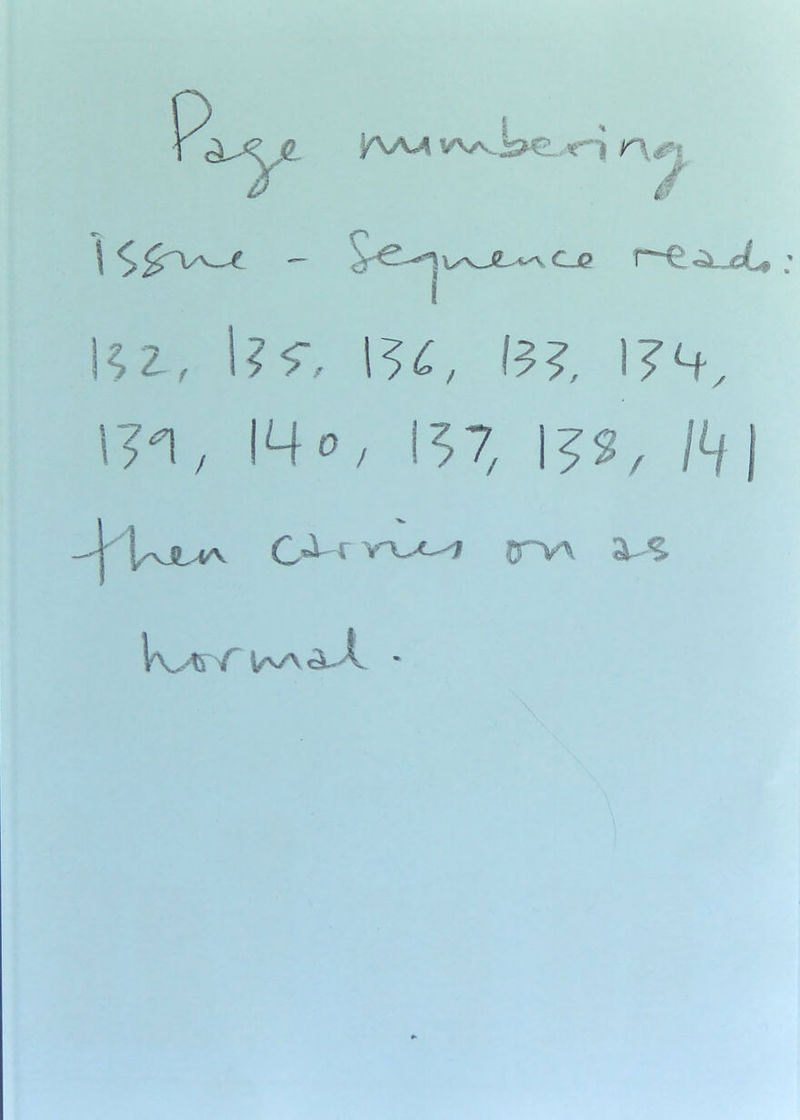 Page numbering
issue - Sequence reads:
132, 135, 136, 133, 134,
139, 140, 137, 138, 141
then carries on as
normal.